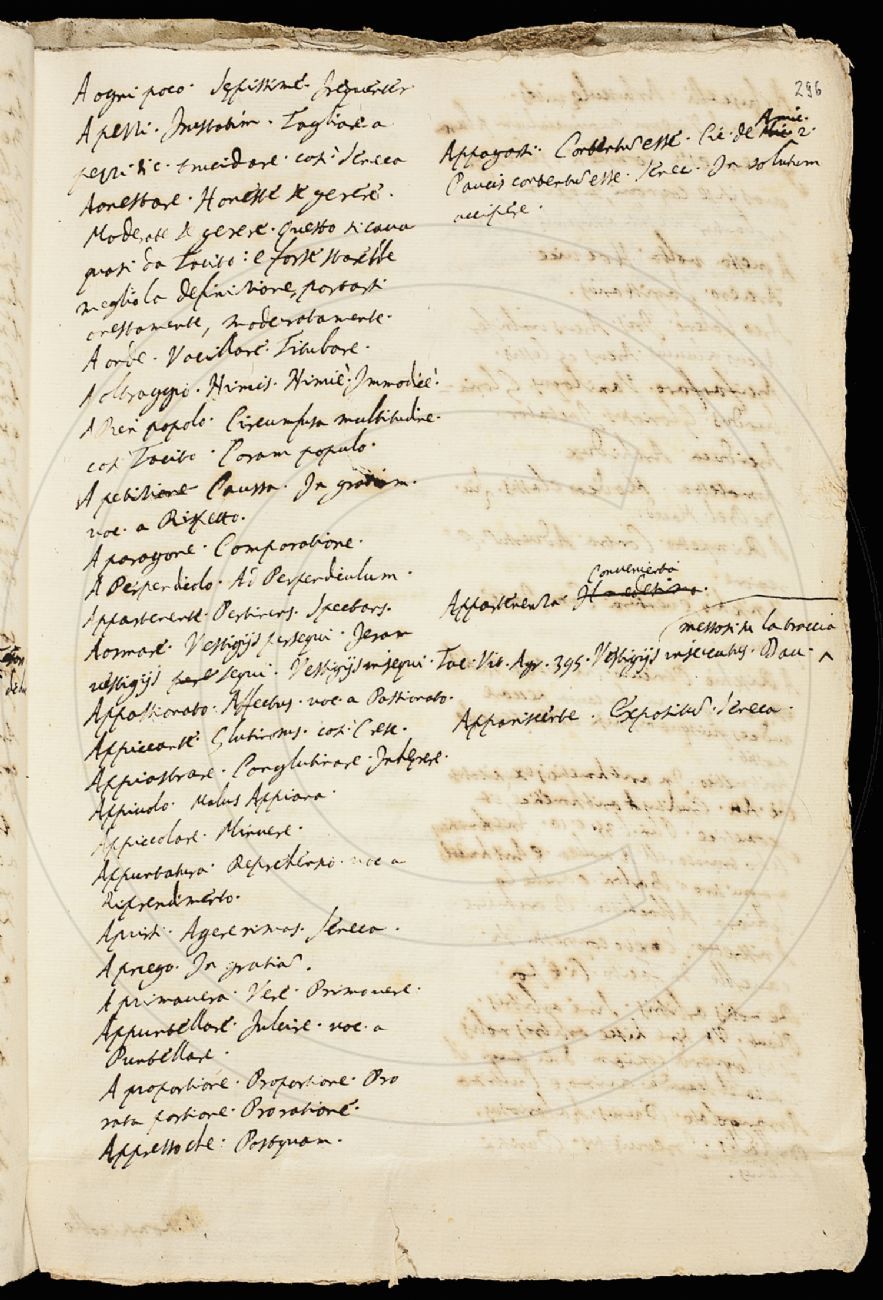 296
A ogni poco. Sepissime. Frequenter
A pezzi. Frustatim. Tagliare a
pezzi. trucidare. così Seneca
Aonestare. Honeste se gerere.
Moderate se gerere. Questo si cava
quasi da Tacito: e forse sarebbe
meglio la definizione, portarsi
onestamente, moderatamente.
A onde. Vacillare. Titubare.
A oltraggio. Nimis. Nimie. Immodice.
A Pien popolo. Circumfusa multitudine.
così Tacito. Coram populo.
A petizione Caussa. In gratiam.
voc. a Rispetto.
A paragone. Comparatione.
A Perpendiclo. Ad Perpendiculum.
Appartenente. Pertinens. Spectans.
Aormare. Vestigijs persequi. Feram
vestigijs sequi. Vestigijs insequi. Tac. Vit. Agr. 395. Vestigijs insecutus.
Appassionato. Affectus. voc. a Passionato.
Appiccante Glutinosus. così Cresc.
Appiastrare. Conglutinare. Integere.
Appiuolo. Malus Appiana.
Appiccolare. Minuere.
Appuntatura. Reprehensio. voc. a
Riprendimento.
Apristi. Agerenimas. Seneca.
A priego. In gratia.
A primavera. Vere. Primo vere.
Appuntellare. Fulcire. voc. a
Puntellare.
A proportione. Proportione. Pro
rata portione. Pro ratione.
Appresso che. Postquam.
Appagarsi. Contentum esse. Cic. de Amic. 2.
Paucis contentum esse. Senec. In solutum
accipere.
Convenientia
Appartenenza.
messosi su la traccia
Appariscente. Expositus. Seneca.